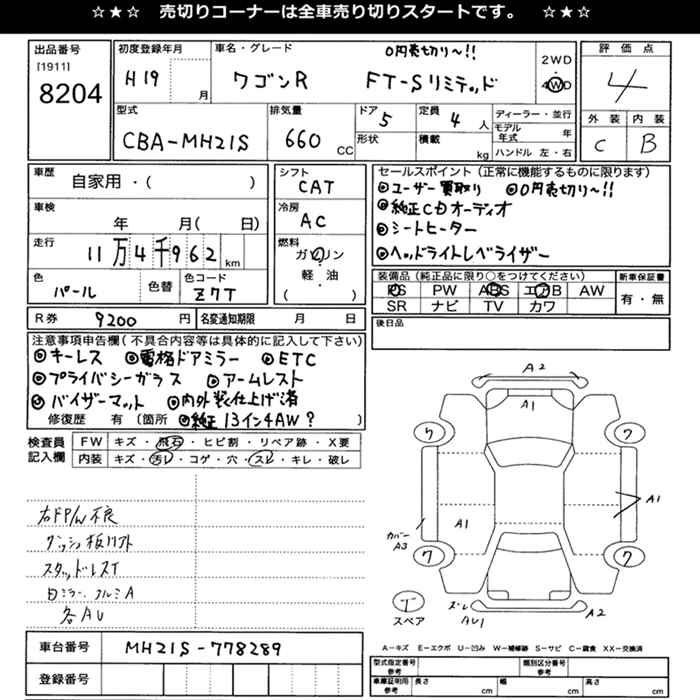 ☆★☆ 売切りコーナーは全車売り切りスタートです。 ☆★☆
出品番号
[1911]
8204
初度登録年月
H19
月
車名・グレード
0円売切り~!!
ワゴンR FT-Sリミテッド
2WD
4WD
評価点
4
外装 内装
C B
型式
CBA-MH21S
排気量
660
CC
ドア
5
形状
定員
4 人
積載
kg
ディーラー・並行
モデル年式 年
ハンドル 左・右
車歴
自家用・( )
車検
年 月( 日)
走行
11万4千962
km
色
パール
色替
色コード
Z7T
シフト
CAT
冷房
AC
燃料
ガソリン
軽・油
( )
セールスポイント(正常に機能するものに限ります)
◎ユーザー買取り ◎0円売切り~!!
◎純正CDオーディオ
◎シートヒーター
◎ヘッドライトレベライザー
装備品(純正品に限り○をつけてください)
PS PW ABS エアB AW
SR ナビ TV カワ
新車保証書
有・無
後日品
R券 9200 円
名変通知期限 月 日
注意事項申告欄(不具合内容等は具体的に記入して下さい)
◎キーレス ◎電格ドアミラー ◎ETC
◎プライバシーガラス ◎アームレスト
◎バイザーマット ◎内外装仕上げ済
修復歴 有(箇所 ◎純正13インチAW? )
検査員
記入欄
FW キズ・飛石・ヒビ割・リペア跡・X要
内装 キズ・汚レ・コゲ・穴・スレ・キレ・破レ
右FP/W不良
ダッシュ板リフト
スタッドレスT
各AU
A2
A1
ワ
ワ
A1
A1
カバー
A3
ワ
ワ
T
スペア
ズレ
AU1
A2
A-キズ E-エクボ U-凹み W-補修跡 S-サビ C-腐食 XX-交換済
車台番号 MH21S-778289
登録番号
型式指定番号
参考
類別区分番号
参考
車庫証明用
参考
長さ cm
幅 cm
高さ cm